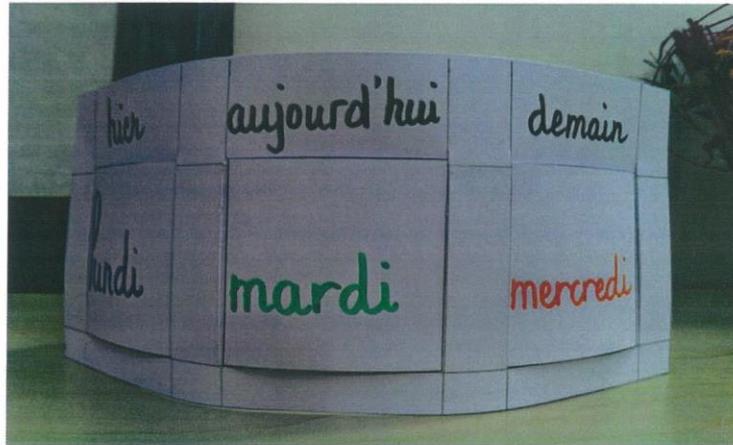 hier aujourd'hui demain
lundi mardi mercredi